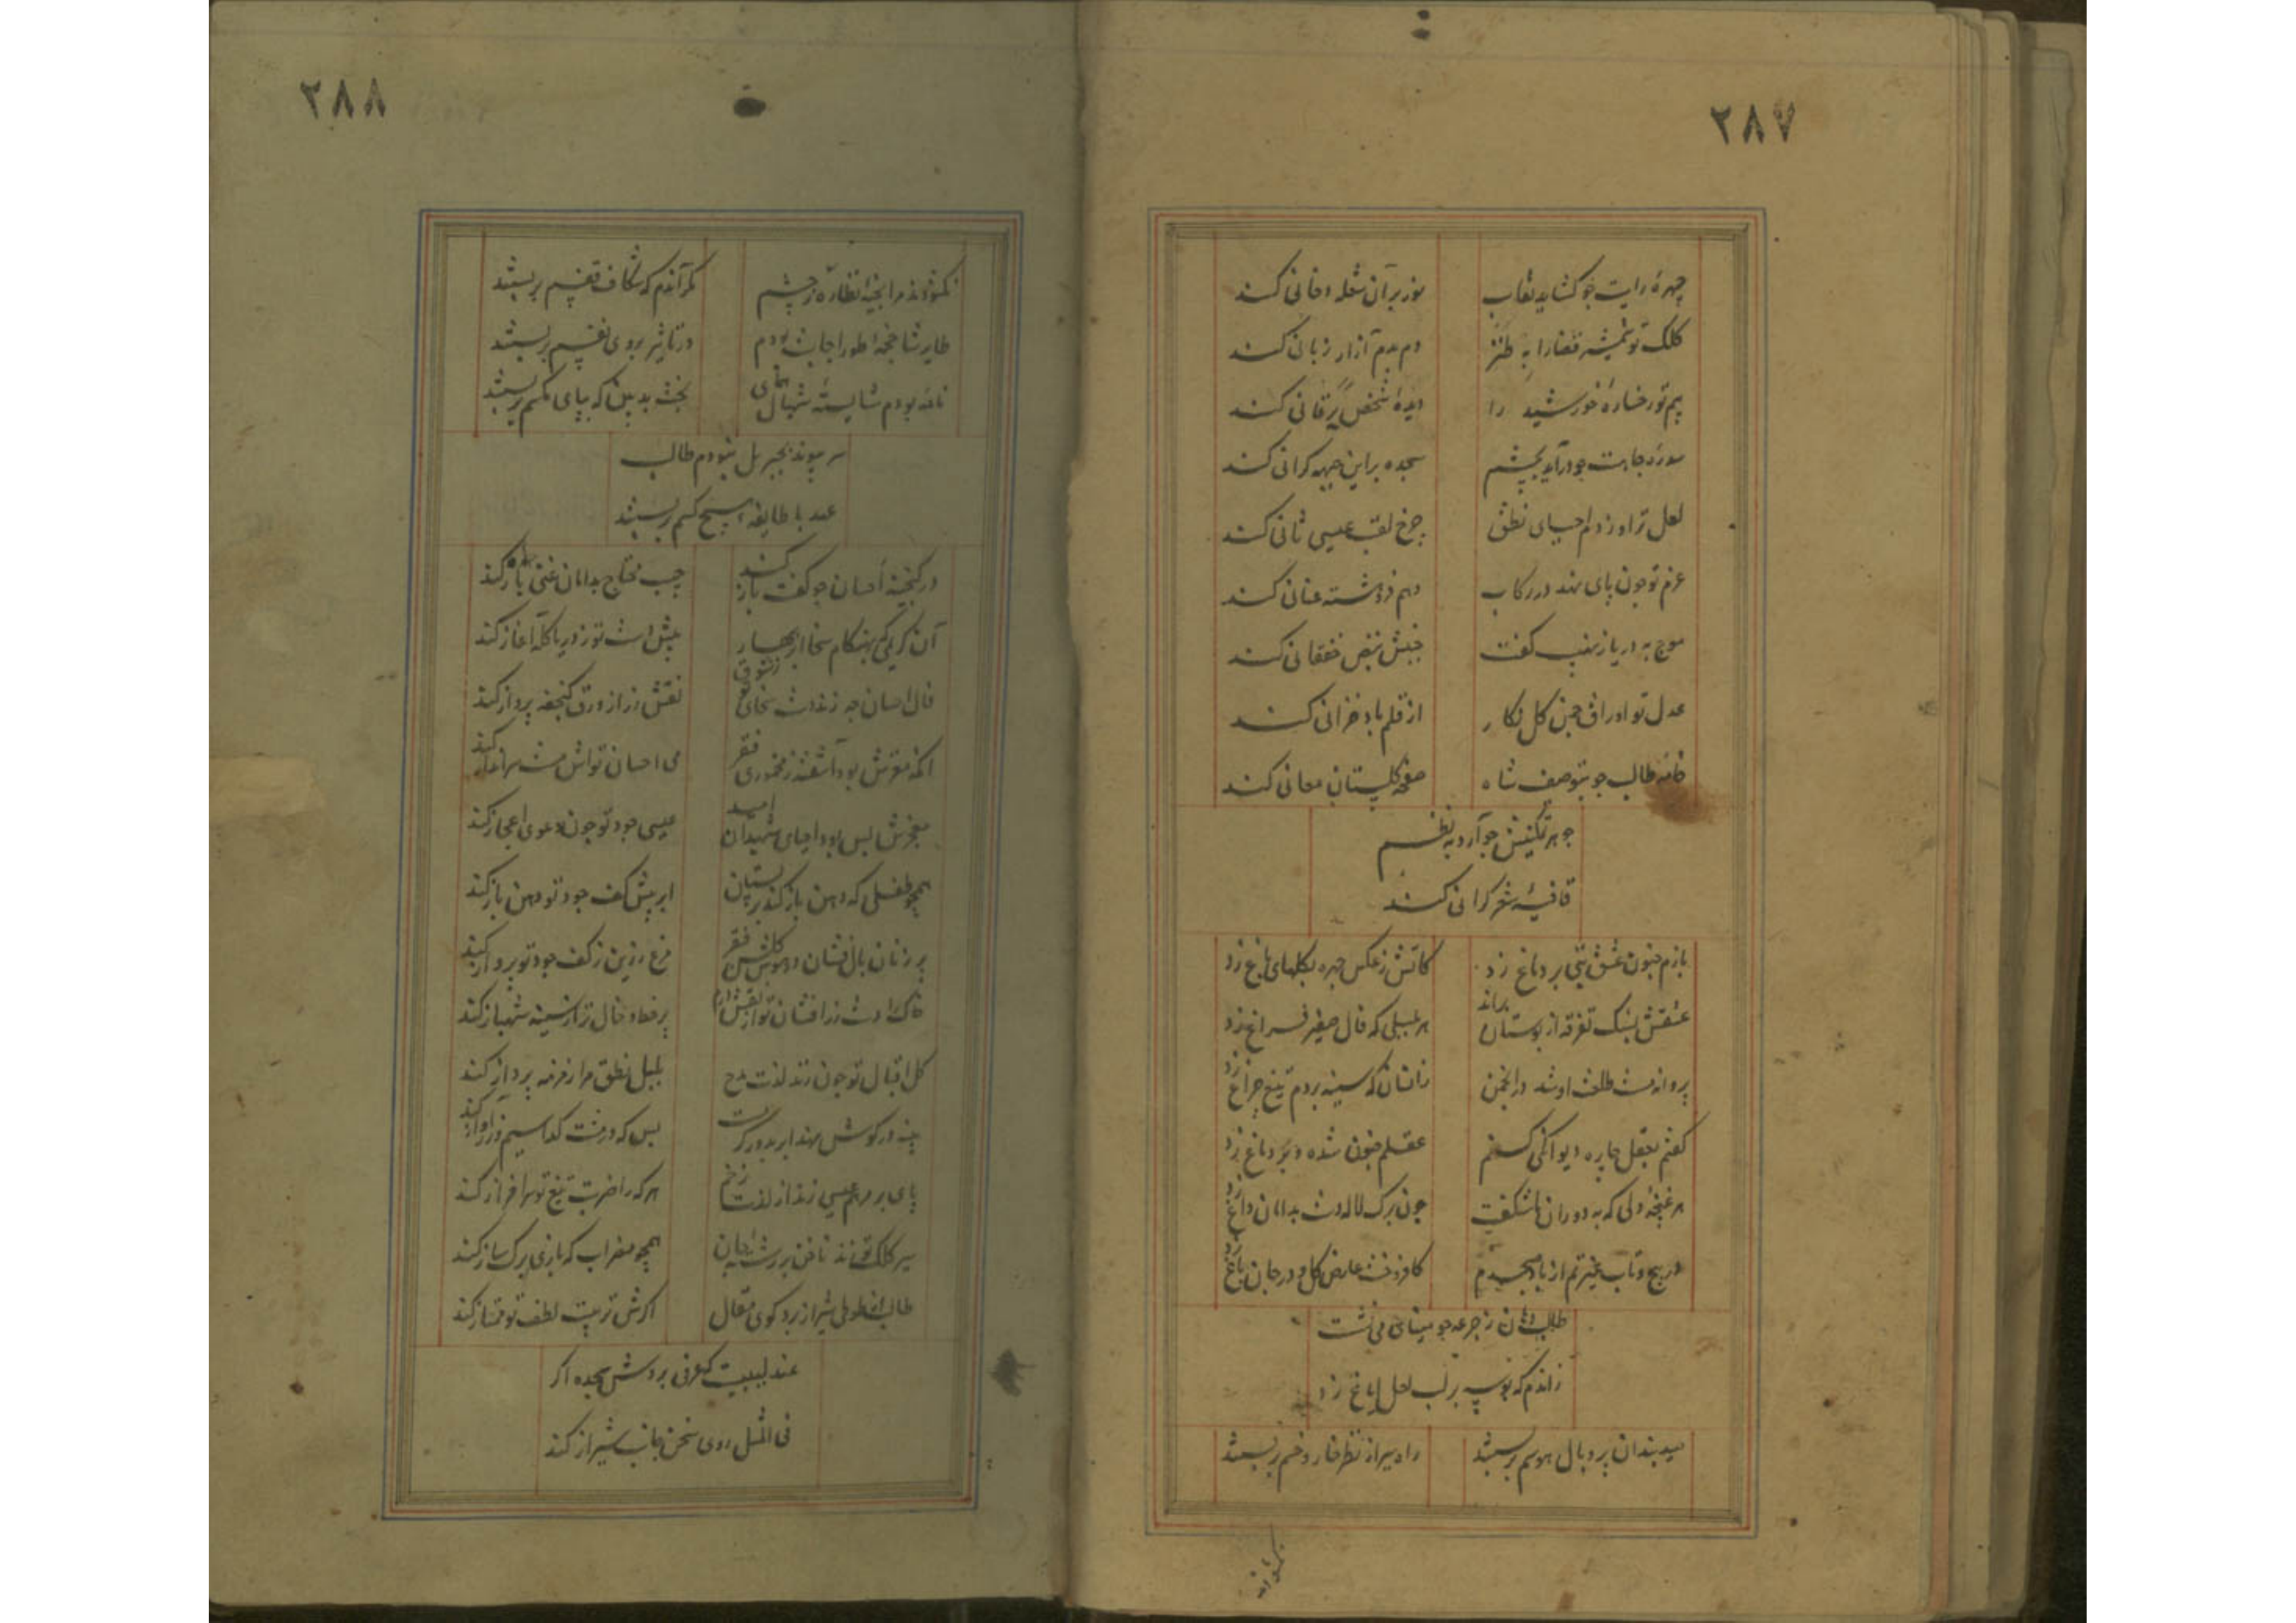 ۲۸۷
چهرهٔ رایت چو کشاید نقاب
نور بر آن شعله دخانی کند
کلک تو شمشیر قضا را به طنز
دم بدم آزار زبانی کند
بیم تو رخسارهٔ خورشید را
دیدهٔ شخص یرقانی کند
سجده بر این جبهه کرانی کند
لعل تو از دم احیای نطق
چرخ لقب عیسی ثانی کند
عزم تو چون پای نهد در رکاب
وهم فرو هشته عنانی کند
موج به دریا ز نهیب کفت
جنبش نبض خفقانی کند
عدل تو اوراق چمن کل نکار
از قلم باد خزانی کند
خامه طالب چو بتوصیف شاه
صفحه کلستان معانی کند
جوهر تمکینش چو آرد به نظم
قافیهٔ شعر کرانی کند
بازم جنون عشق بتی بر دماغ زد
کاتش ز عکس چهره بکلهای باغ زد
عشقش بسنک تفرقه از بوستان براند
هر بلبلی که فال صفیر فراغ زد
پروانه مست طلعت او شد در انجمن
زانسان که سینه بر دم تیغ چراغ زد
کفتم بعقل چاره دیوانکی کنم
عقلم جنون شده و بر دماغ زد
هر غنچهٔ دلی که به دوران ما شکفت
چون برک لاله دست بدامان داغ زد
در پیچ و تاب غیرتم از باد صبحدم
کافروخت عارض کل و در جان باغ زد
زاندم که بوسه بر لب لعل ایاغ زد
صید بندان پر و بال هوسم بربستند
راه سیر از نظر خار و خسم بربستند
۲۸۸
کمر آندم که شکاف قفسم بربستند
طایر شاخچه طور اجابت بودم
در تاثیر بروی نفسم بربستند
نامه بودم شایسته شهبال همای
بخت بد بین که بپای مکسم بربستند
سر پیوند بجبریل نبودم طالب
عهد با طایفه هیچ کسم بربستند
در کنجینه احسان چو کفت باز کند
جیب محتاج بدامان غنی ناز کند
آن کریمی که بهنکام سخا ابر بهار
پیش دست تو ز دریا کله آغاز کند
فال احسان چو زند دست سخای تو ز شوق
نقش زر از ورق کنجفه پرواز کند
آنکه مغزش بود آشفته ز مخموری فقر
می احسان تواش مست سرانداز کند
معجزش بس بود احیای شهیدان امید
عیسی جود تو چون دعوی اعجاز کند
همچو طفلی که دهن باز کند بر پستان
ابر پیش کف جود تو دهن باز کند
مرغ زرین ز کف جود تو پرواز کند
خاک را دست زرافشان تو از نقش درم
پر خط و خال تر از سینه شهباز کند
کل اقبال تو چون زند لذت مدح
بلبل نطق مرا زمزمه پرداز کند
پنبه در کوش نهد ابر بدور کرمت
بس که در مشت کدا سیم و زر آواز کند
پای بر مرهم عیسی زند از لذت زخم
هر که را ضربت تیغ تو سرافراز کند
سر کلک تو زند ناخن بر رشته جان
همچو مضراب که بازی برک ساز کند
طالب از طوطی شیراز برد کوی مقال
اکرش تربیت لطف تو ممتاز کند
عندلیبیست که عرفی بردش سجده اکر
فی المثل روی سخن جانب شیراز کند